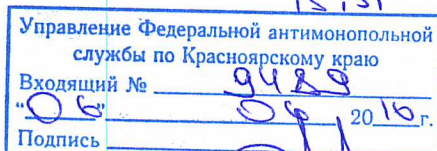 Управление Федеральной антимонопольной
службы по Красноярскому краю
Входящий № 9489
"06" 06 2016 г.
Подпись